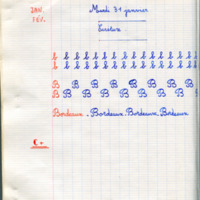 JAN.
FÉV.
Mardi 31 janvier
Écriture
b b b b b b b b b b b b b b
b b b b b b b b b b b b b b
B B B B B B B B
B B B B B B B B B
Bordeaux. Bordeaux. Bordeaux. Bordeaux